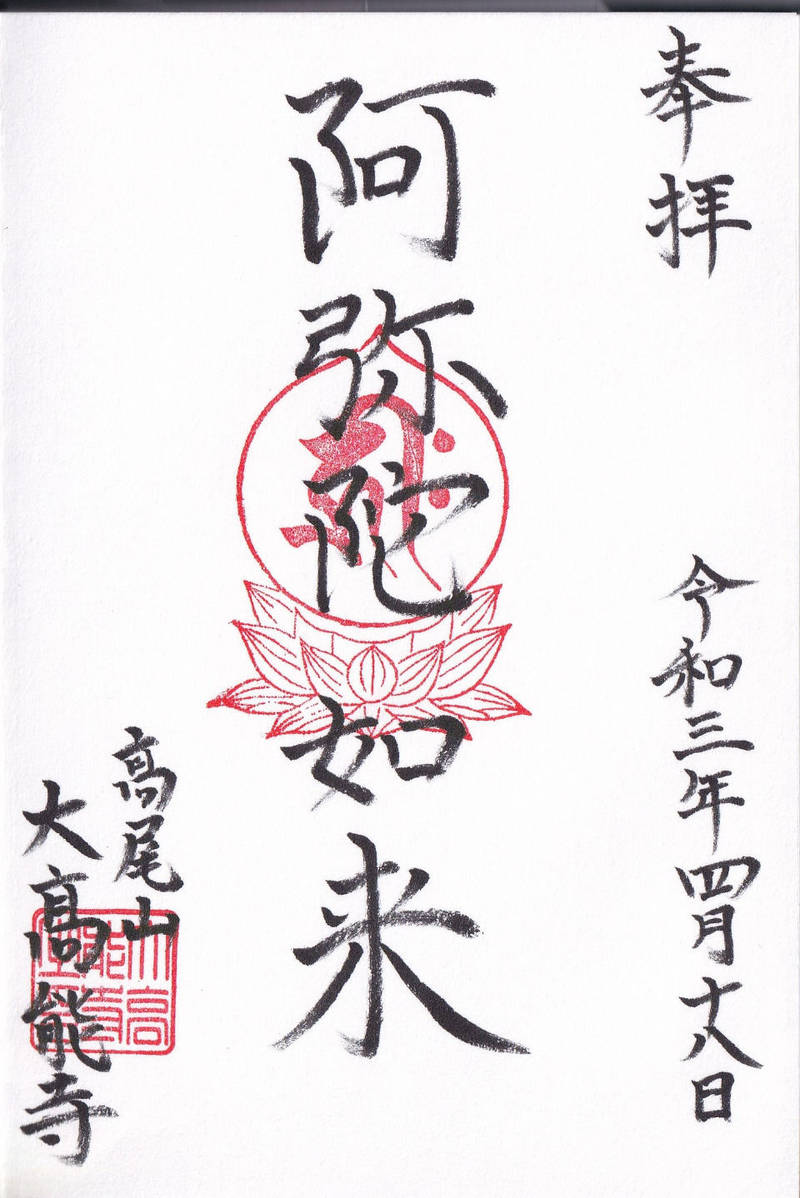 奉拝
令和三年四月十八日
阿弥陀如来
高尾山
大高能寺